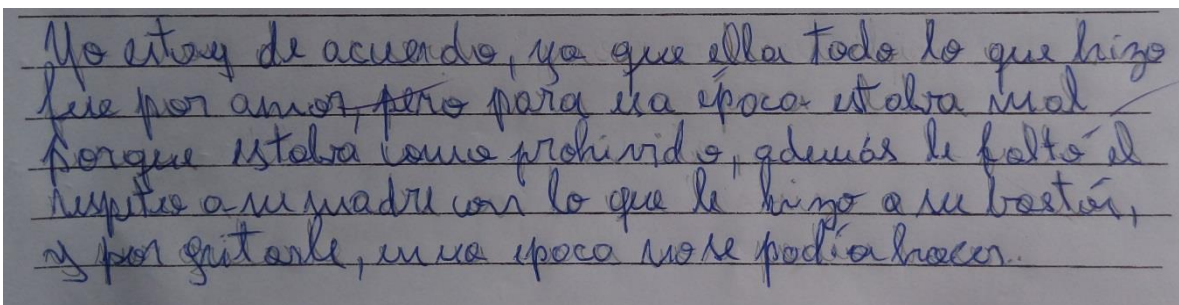 Yo estoy de acuerdo, ya que ella todo lo que hizo
fue por amor, pero para esa época estaba mal
porque estaba como prohivido, además le faltó el
respeto a su madre con lo que le hizo a su bastón,
y por gritarle, en esa epoca no se podía hacer.